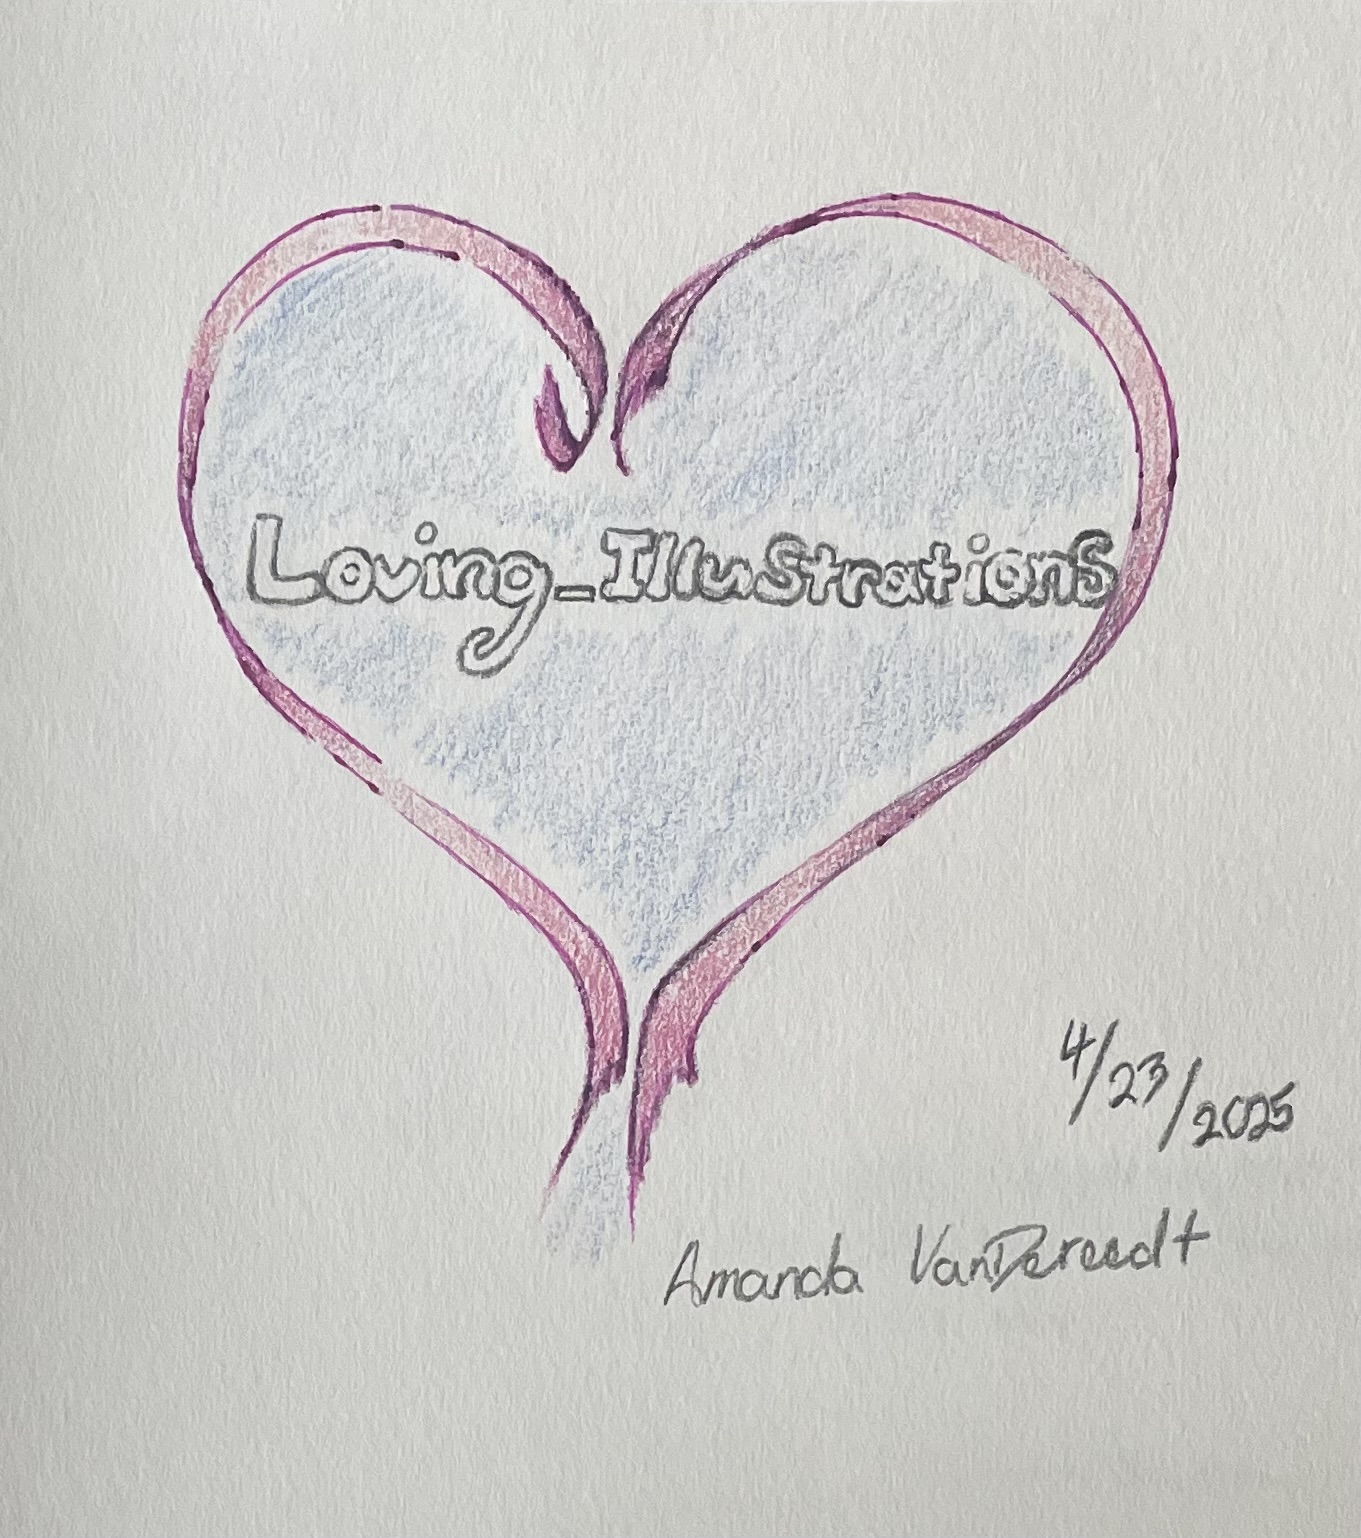 Loving_IlluStrationS
4/23/2025
Amanda VanDereedt